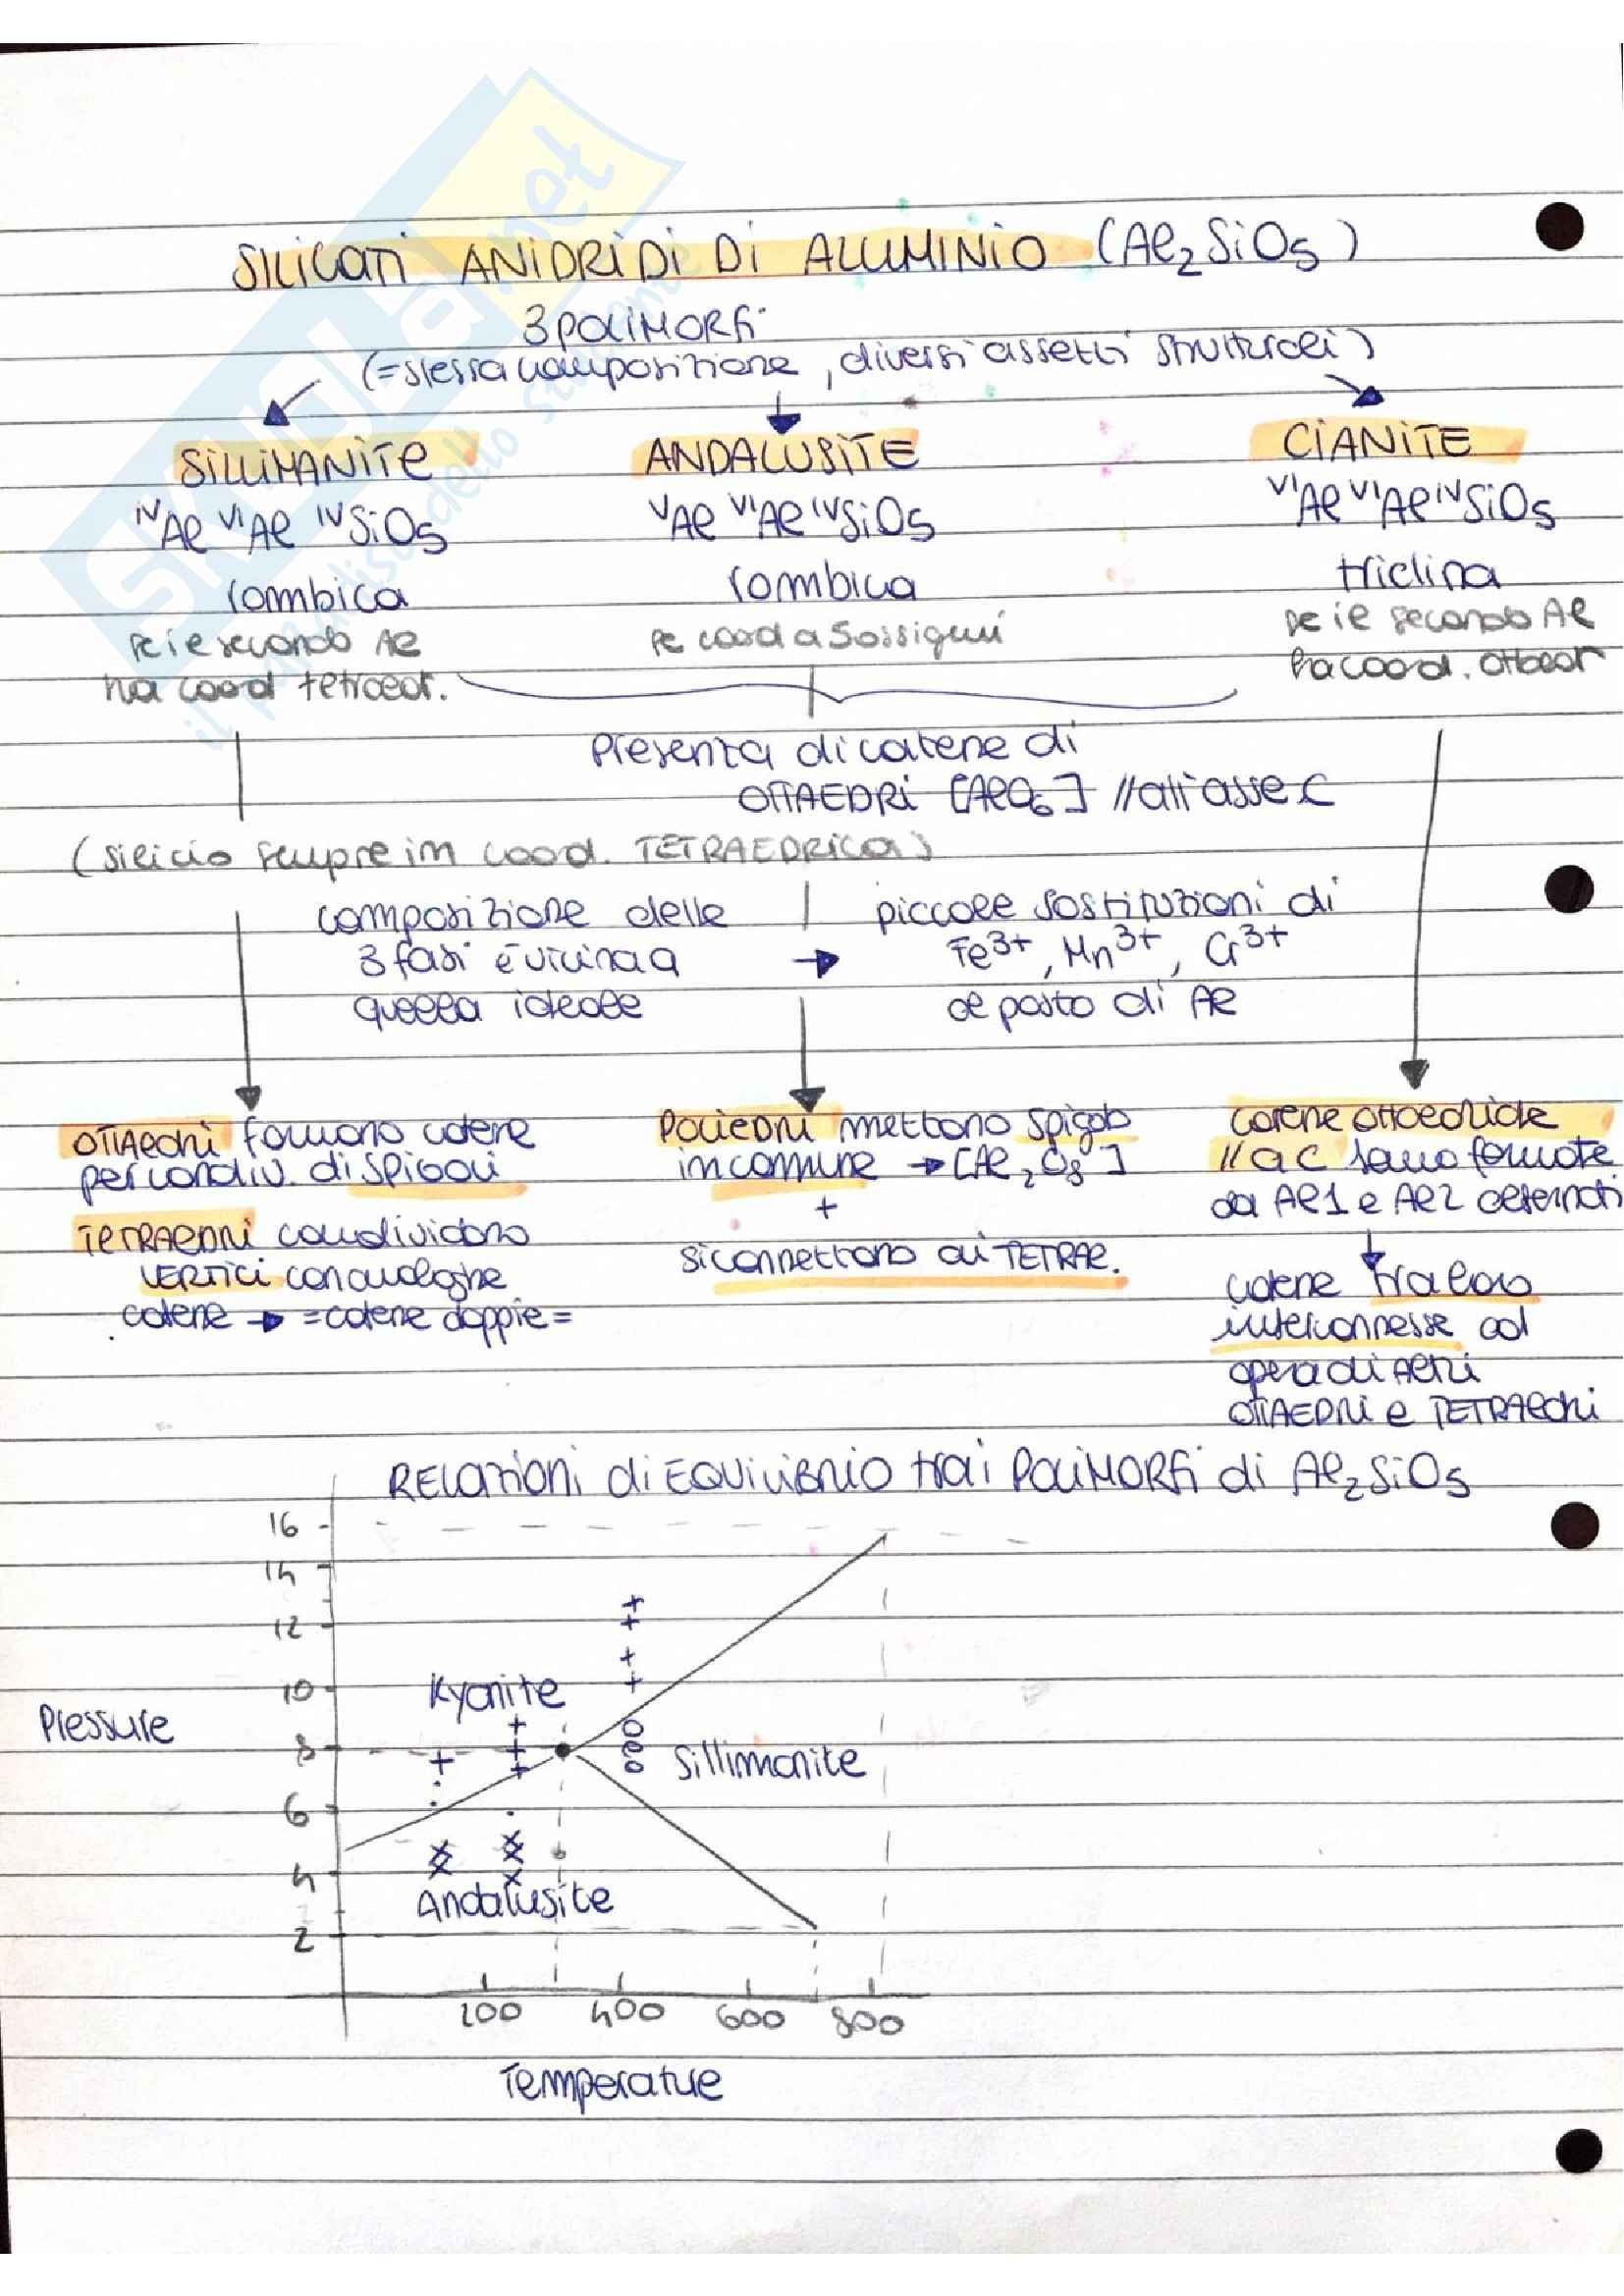 SILICATI ANIDRIDI DI ALLUMINIO (Al₂SiO₅)
3 POLIMORFI
(=stessa composizione, diversi assetti strutturali)
SILLIMANITE
ᴵⱽAl ⱽᴵAl ᴵⱽSiO₅
rombica
se il secondo Al
ha coord tetraedr.
ANDALUSITE
ⱽAl ⱽᴵAl ᴵⱽSiO₅
rombica
se coord a 5 ossigeni
CIANITE
ⱽᴵAl ⱽᴵAl ᴵⱽSiO₅
triclina
se il secondo Al
ha coord. ottaedr
presenza di catene di
OTTAEDRI [AlO₆] // all'asse C
(silicio sempre in coord. TETRAEDRICA)
composizione delle
3 fasi è vicina a
quella ideale
piccole sostituzioni di
Fe³⁺, Mn³⁺, Cr³⁺
al posto di Al
OTTAEDRI formano catene
per condiv. di SPIGOLI
TETRAEDRI condividono
VERTICI con analoghe
catene → =catene doppie=
POLIEDRI mettono spigolo
in comune → [Al₂O₈]
+
si connettono ai TETRAE.
catene ottaedriche
// a C sono formate
da Al1 e Al2 alternati
catene tra loro
interconnesse ad
opera di Altri
OTTAEDRI e TETRAEDRI
RELAZIONI di EQUILIBRIO tra i POLIMORFI di Al₂SiO₅
16
14
12
10
8
6
4
2
Pressure
Kyanite
Sillimanite
Andalusite
200
400
600
800
Temperature
SKUOLA.net
il paradiso dello studente